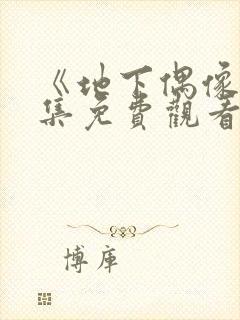 《地下偶像
集免費觀看
博库